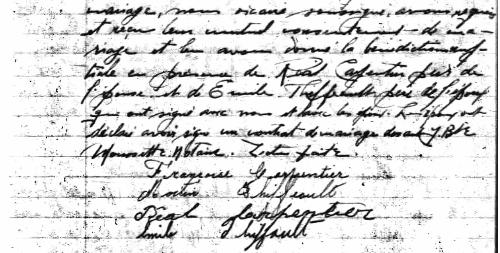 mariage, nous vicaire soussigné, avons requis
et reçu leur mutuel consentement de ma-
riage et leur avons donné la bénédiction nup-
tiale en présence de Réal Carpentier père de
l'épouse et de Emile Thiffault père de l'époux
qui ont signé avec nous et avec les époux. Les époux ont
déclaré avoir signé un contrat de mariage devant J. Bte
Notaire. Lecture faite.
Françoise Carpentier
Thiffault
Réal Carpentier
Emile Thiffault